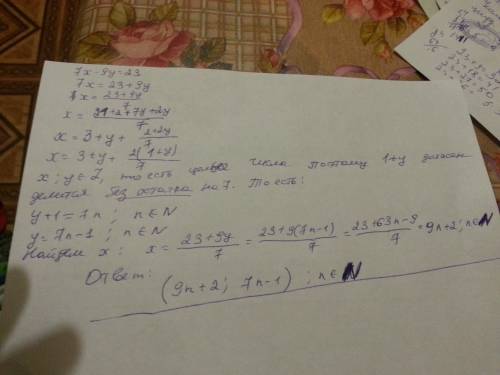 7x-9y=23
7x=23+9y
x=\frac{23+9y}{7}
x=\frac{21+2+7y+2y}{7}
x=3+y+\frac{2+2y}{7}
x=3+y+\frac{2(1+y)}{7}
x; y∈Z, то есть целые числа поэтому 1+y должен
делится без остатка на 7. То есть:
y+1=7n; n∈N
y=7n-1; n∈N
Найдем x: x=\frac{23+9y}{7}=\frac{23+9(7n-1)}{7}=\frac{23+63n-9}{7}=9n+2; n∈N
Ответ:
(9n+2; 7n-1); n∈N